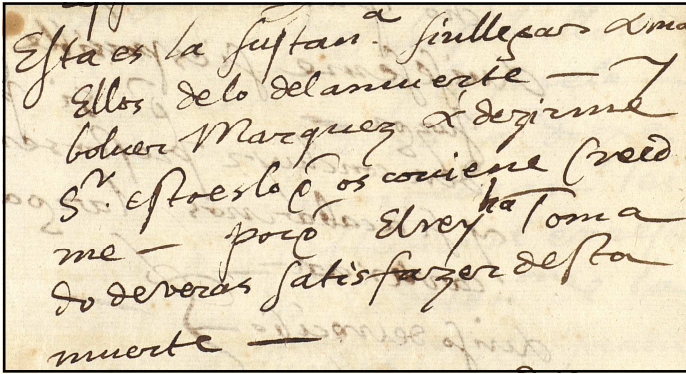 Esta es la sustanª. sin llegar a ma
Ellos de lo dela muerte —
boluer Marquez a dezirme
Sr. esto es lo q̃ os cõuiene Creed
me — porq̃ El rey ha Toma
do de veras satisfazer desta
muerte —